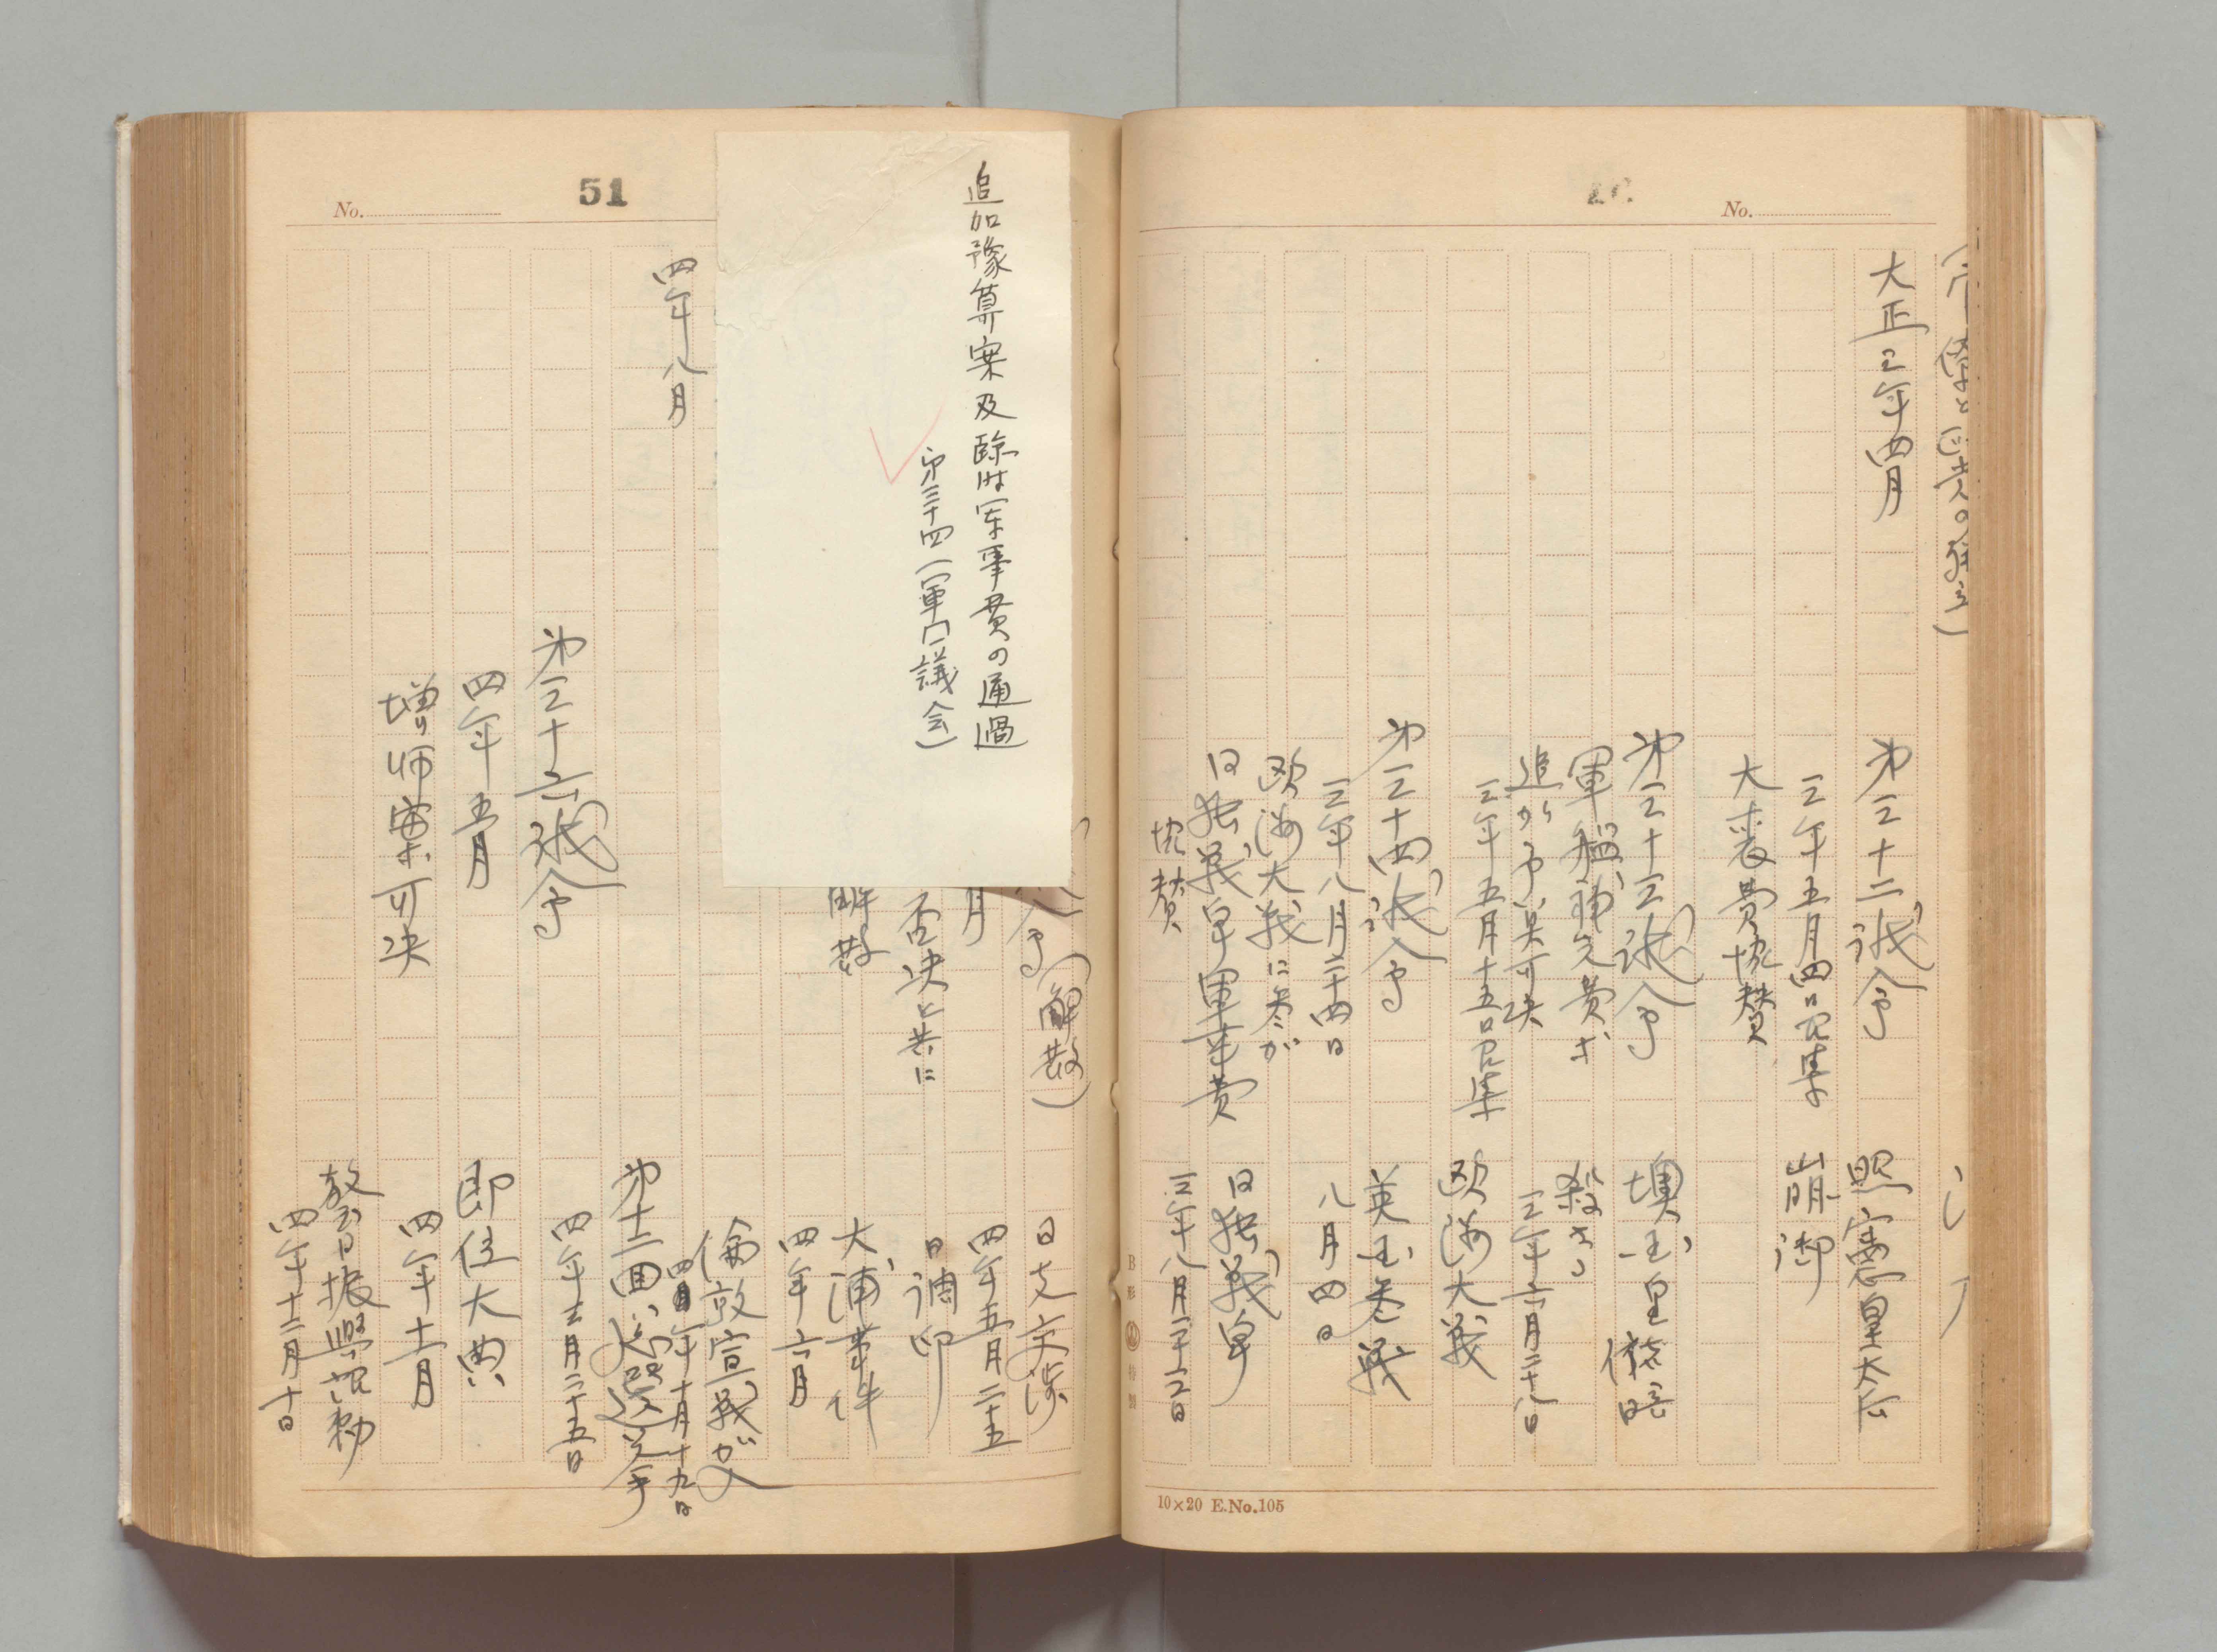 No.
大正三年四月
第三十二議会
三年五月四日召集
大喪費協賛
第三十三議会
軍艦補充費ホ
追が予算可決
三年五月十五日召集
第三十四議会
三年八月二十四日
欧洲大戦に参が
日独戦争軍事費
協賛
照憲皇太后
崩御
墺国皇儲暗
殺さる
三年六月二十八日
欧洲大戦
英国参戦
八月四日
日独戦争
三年八月二十三日
B形
特製
10×20 E.No.105
51
No.
追加豫算案及臨時軍事費の通過
第三十四(軍門議会)
(解散)
月
否決と共に
解散
四年八月
第三十六議会
四年五月
増師案可決
日支交渉
四年五月二十五
日調印
大浦事件
四年六月
倫敦宣戦が入
四年十月十九日
第十二回総選挙
四年三月二十五日
即位大典
四年十一月
教育振興詔勅
四年十二月十日